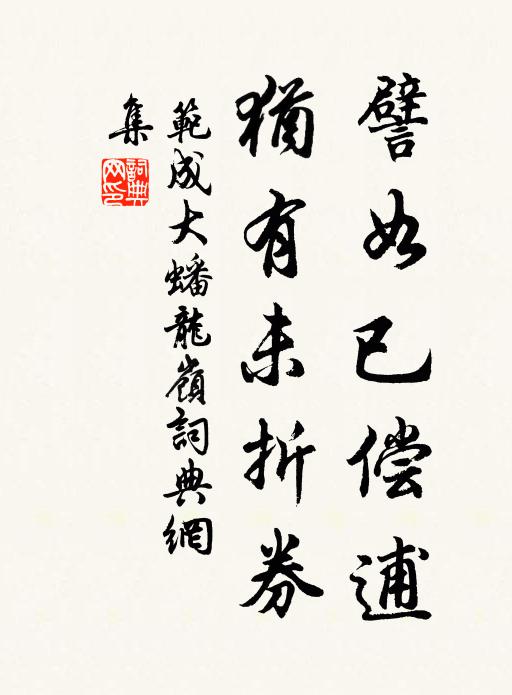 譬如已偿逋
猶有未折券
範成大蟠龍嶺詞典網
集
詞典
网印